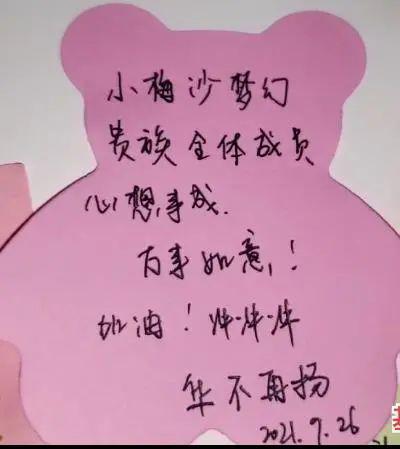 小梅沙梦幻
贵族全体成员
心想事成.
百事如意!
加油!
华不再扬
2021.9.26